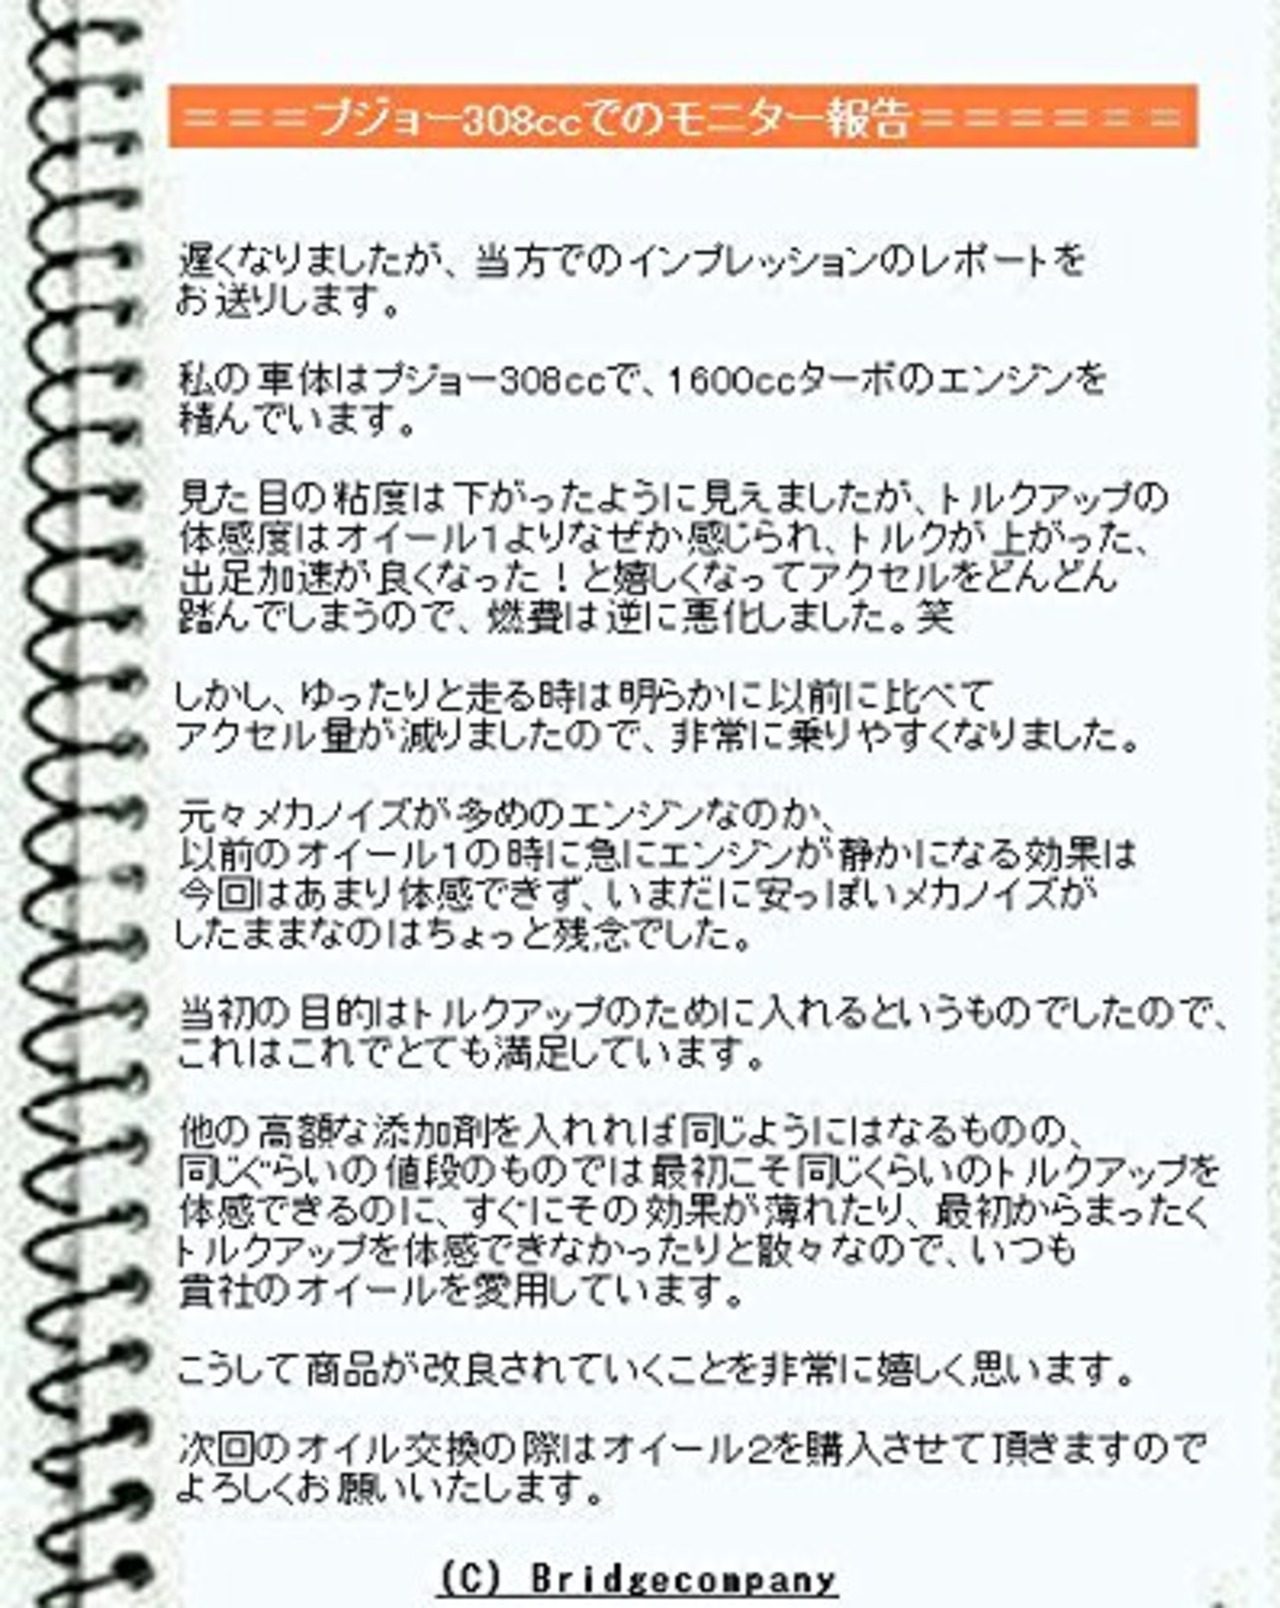 ===プジョー308ccでのモニター報告======
遅くなりましたが、当方でのインプレッションのレポートを
お送りします。
私の車体はプジョー308ccで、1600ccターボのエンジンを
積んでいます。
見た目の粘度は下がったように見えましたが、トルクアップの
体感度はオイール1よりなぜか感じられ、トルクが上がった、
出足加速が良くなった！と嬉しくなってアクセルをどんどん
踏んでしまうので、燃費は逆に悪化しました。笑
しかし、ゆったりと走る時は明らかに以前に比べて
アクセル量が減りましたので、非常に乗りやすくなりました。
元々メカノイズが多めのエンジンなのか、
以前のオイール1の時に急にエンジンが静かになる効果は
今回はあまり体感できず、いまだに安っぽいメカノイズが
したままなのはちょっと残念でした。
当初の目的はトルクアップのために入れるというものでしたので、
これはこれでとても満足しています。
他の高額な添加剤を入れれば同じようにはなるものの、
同じぐらいの値段のものでは最初こそ同じくらいのトルクアップを
体感できるのに、すぐにその効果が薄れたり、最初からまったく
トルクアップを体感できなかったりと散々なので、いつも
貴社のオイールを愛用しています。
こうして商品が改良されていくことを非常に嬉しく思います。
次回のオイル交換の際はオイール2を購入させて頂きますので
よろしくお願いいたします。
(C) Bridgecompany